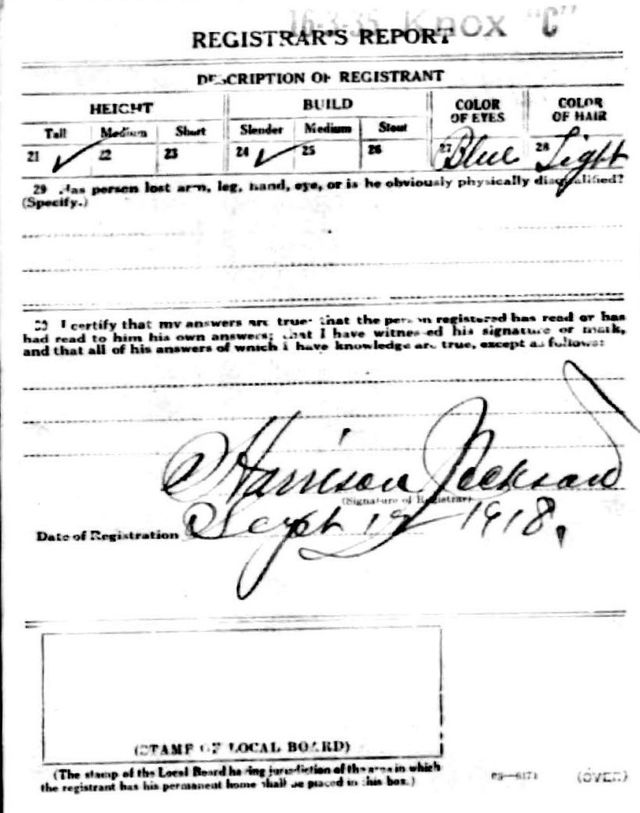 16-3-35 Knox "C"
REGISTRAR'S REPORT
DESCRIPTION OF REGISTRANT
HEIGHT BUILD COLOR OF EYES COLOR OF HAIR
Tall Medium Short Slender Medium Stout
21 ✓ 22 23 24 ✓ 25 26 27 Blue 28 Light
29 Has person lost arm, leg, hand, eye, or is he obviously physically disqualified?
(Specify.)
30 I certify that my answers are true; that the person registered has read or has
had read to him his own answers; that I have witnessed his signature or mark,
and that all of his answers of which I have knowledge are true, except as follows:
Harrison Jackson
(Signature of Registrar)
Date of Registration Sept 12 1918.
(STAMP OF LOCAL BOARD)
(The stamp of the Local Board having jurisdiction of the area in which
the registrant has his permanent home shall be placed in this box.)
(OVER)